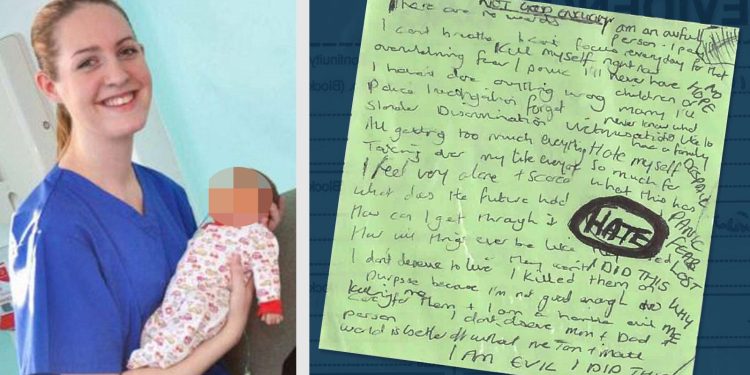 EVIDEN
ontinuity
(Bloc
(Block
There are no words NOT GOOD ENOUGH am an awful
person. I pay
I can't breathe I can't focus everyday for that
Kill myself right now
overwhelming fear / panic I'll never have NO HOPE
I haven't done anything wrong marry I'll
children or
Police investigation forget never know what
Slander Discrimination Victimisation like to
have a family
All getting too much everything Hate myself DESPAIR
Taking over my life everyo so much for
I feel very alone + scared what this has
PANIC
What does the future hold
HATE
FEAR
How can I get through it
LOST
How will things ever be like
I DID THIS
I don't deserve to live I killed them on WHY
purpose because I'm not good enough ME
Killing me
care for them + I am a horrible evil
person I don't deserve mum + Dad
world is better off without me
I AM EVIL I DID THIS